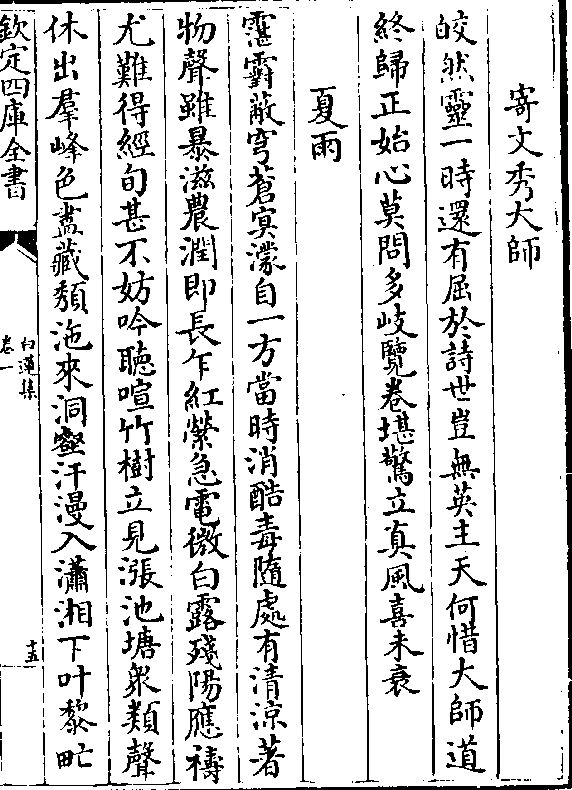 寄文秀大師
皎然靈一時還有屈於詩世豈無英主天何惜大師道
終歸正始心莫問多岐覽卷堪驚立真風喜未衰
夏雨
霮䨴蔽穹蒼冥濛自一方當時消酷毒隨處有清涼著
物聲雖暴滋農潤即長乍紅縈急電微白露殘陽應禱
尤難得經旬甚不妨吟聽喧竹樹立見漲池塘衆類聲
休出羣峰色盡藏頽沲來洞壑汗漫入瀟湘下叶黎甿
欽定四庫全書
白蓮集
卷一
十五